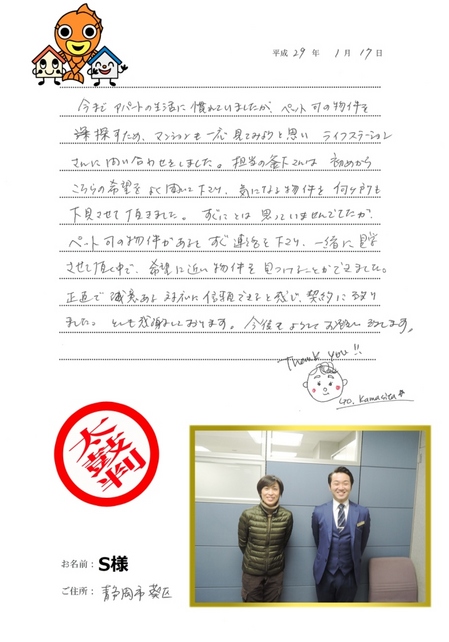 平成 29 年 1 月 17 日
今まで アパートの生活に 慣れていましたが、ペット可の物件を
探すため、マンションも一応 見てみようと思い ライフステーション
さんに問い合わせをしました。担当の釜下さんは 初めから
こちらの希望をよく聞いて下さり、気になる物件を 何ヶ所も
下見させて頂きました。すぐにとは 思っていませんでしたが、
ペット可の物件があると すぐ連絡を下さり、一緒に見学
させて頂く中で、希望に近い物件を 見つけることができました。
正直で 誠意ある 対応に信頼できると感じ、契約に至り
ました。とても感謝しております。今後も よろしく お願い致します。
Thank you!!
to. Kamasita
太鼓判
お名前：S様
ご住所：静岡市葵区